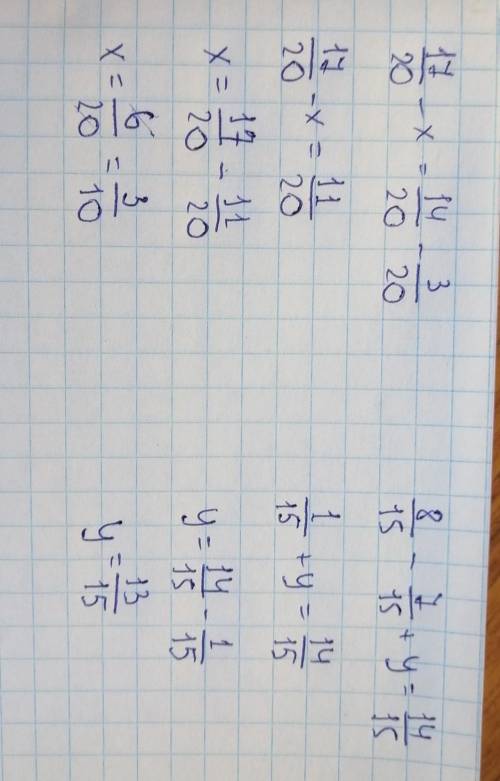 17/20 - x = 14/20 - 3/20
17/20 - x = 11/20
x = 17/20 - 11/20
x = 6/20 = 3/10
8/15 - 7/15 + y = 14/15
1/15 + y = 14/15
y = 14/15 - 1/15
y = 13/15